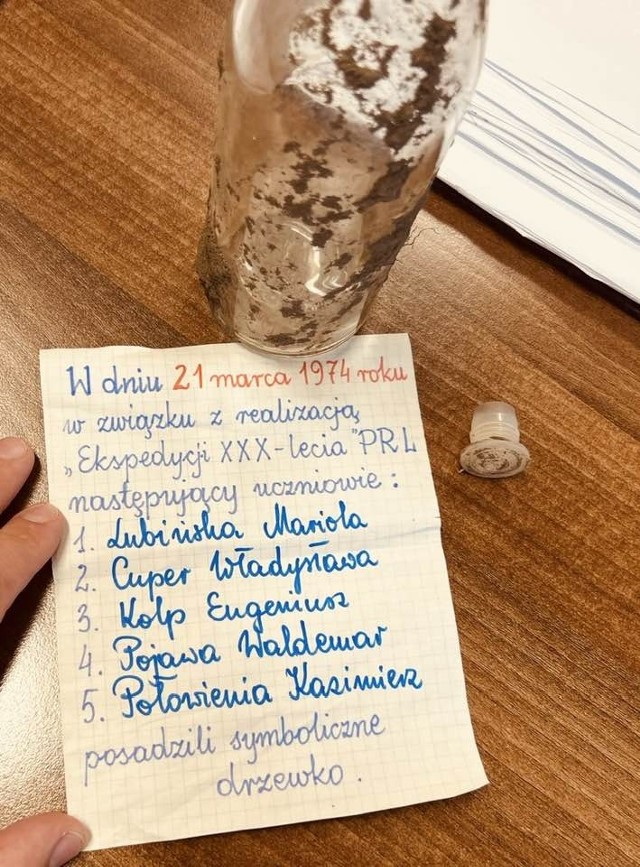 W dniu 21 marca 1974 roku
w związku z realizacją
„Ekspedycji XXX-lecia" PRL
następujący uczniowie :
1. Lubińska Mariola
2. Cuper Władysława
3. Kolp Eugeniusz
4. Pojawa Waldemar
5. Połowienia Kazimierz
posadzili symboliczne
drzewko .